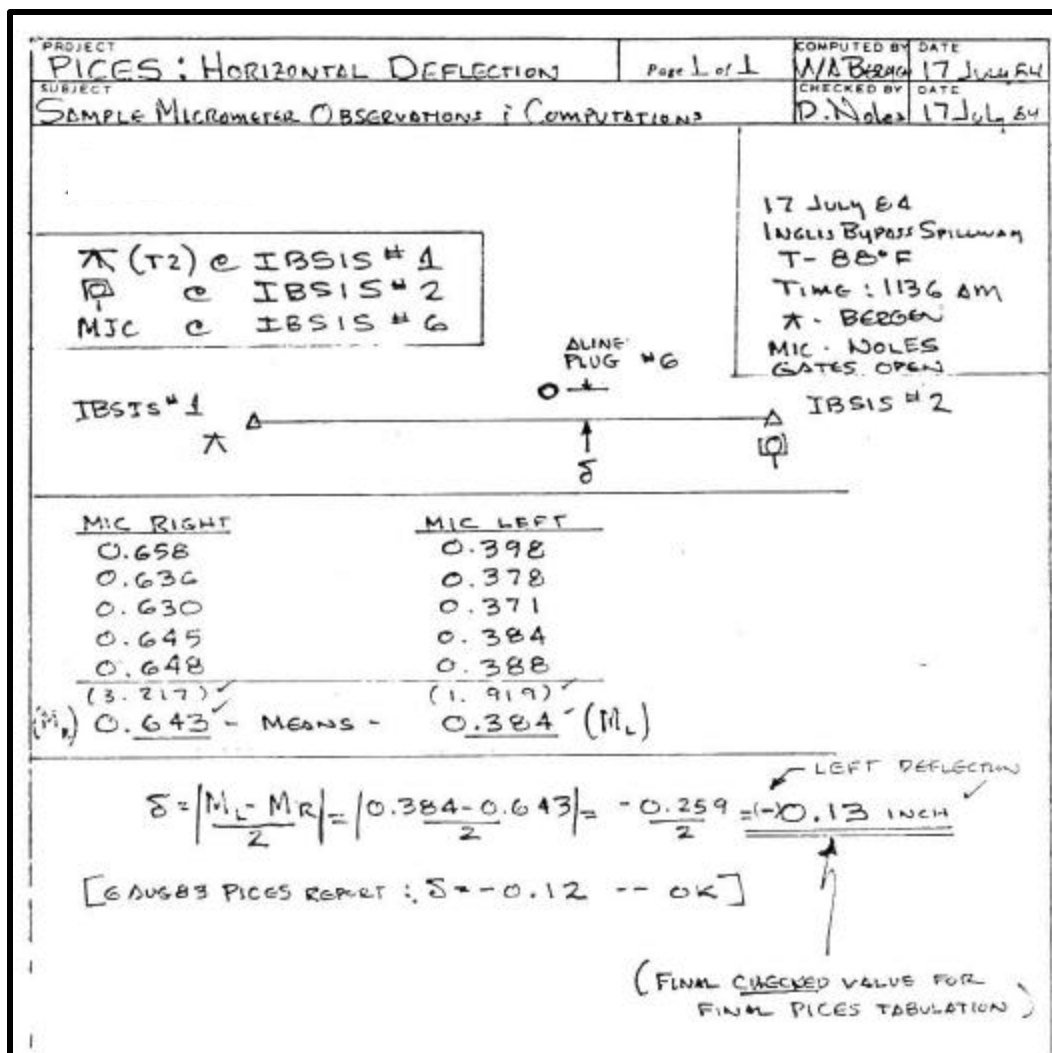 PROJECT
PICES : HORIZONTAL DEFLECTION
Page 1 of 1
COMPUTED BY
DATE
17 July 84
SUBJECT
SAMPLE MICROMETER OBSERVATIONS & COMPUTATIONS
CHECKED BY
D. Noles
DATE
17 July 84
17 July 84
INGLIS BYPASS SPILLWAY
T- 88°F
TIME : 1136 AM
- BERGEN
MIC - NOLES
GATES OPEN
(T2) @ IBSIS # 1
@ IBSIS # 2
MIC @ IBSIS # 6
ALINE
PLUG #6
IBSIS # 1
IBSIS # 2
δ
MIC RIGHT MIC LEFT
0.658 0.398
0.636 0.378
0.630 0.371
0.645 0.384
0.648 0.388
(3.217) ✓ (1.919) ✓
(M_R) 0.643 ✓ - MEANS - 0.384 ✓ (M_L)
LEFT DEFLECTION ✓
δ = |M_L - M_R / 2| = |0.384 - 0.643 / 2| = -0.259 / 2 = (-)0.13 INCH
[6 AUG 83 PICES REPORT : δ = -0.12 -- OK]
(FINAL CHECKED VALUE FOR
FINAL PICES TABULATION)